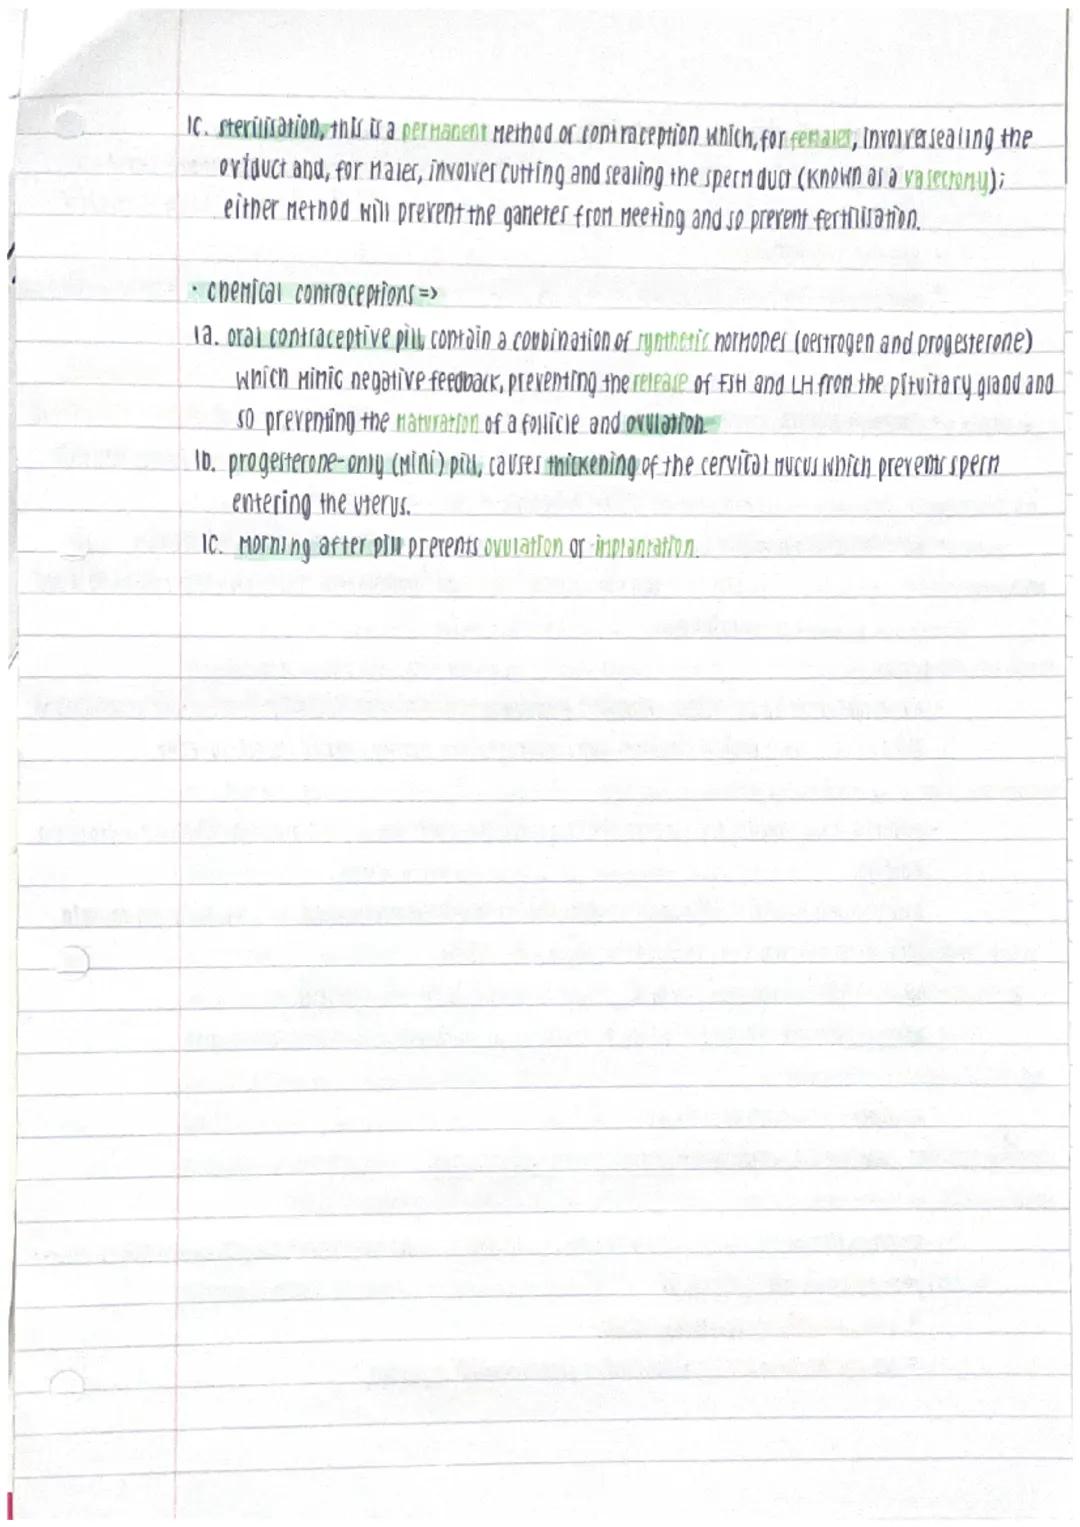 1c. sterilisation, this is a permanent method of contraception which, for females, involves sealing the
oviduct and, for males, involves cutting and sealing the sperm duct (known as a vasectomy);
either method will prevent the gametes from meeting and so prevent fertilisation.
· chemical contraceptions =>
1a. oral contraceptive pill, contain a combination of synthetic hormones (oestrogen and progesterone)
which mimic negative feedback, preventing the release of FSH and LH from the pituitary gland and
so preventing the maturation of a follicle and ovulation.
1b. progesterone-only (mini) pill, causes thickening of the cervical mucus which prevents sperm
entering the uterus.
1c. Morning after pill prevents ovulation or implantation.